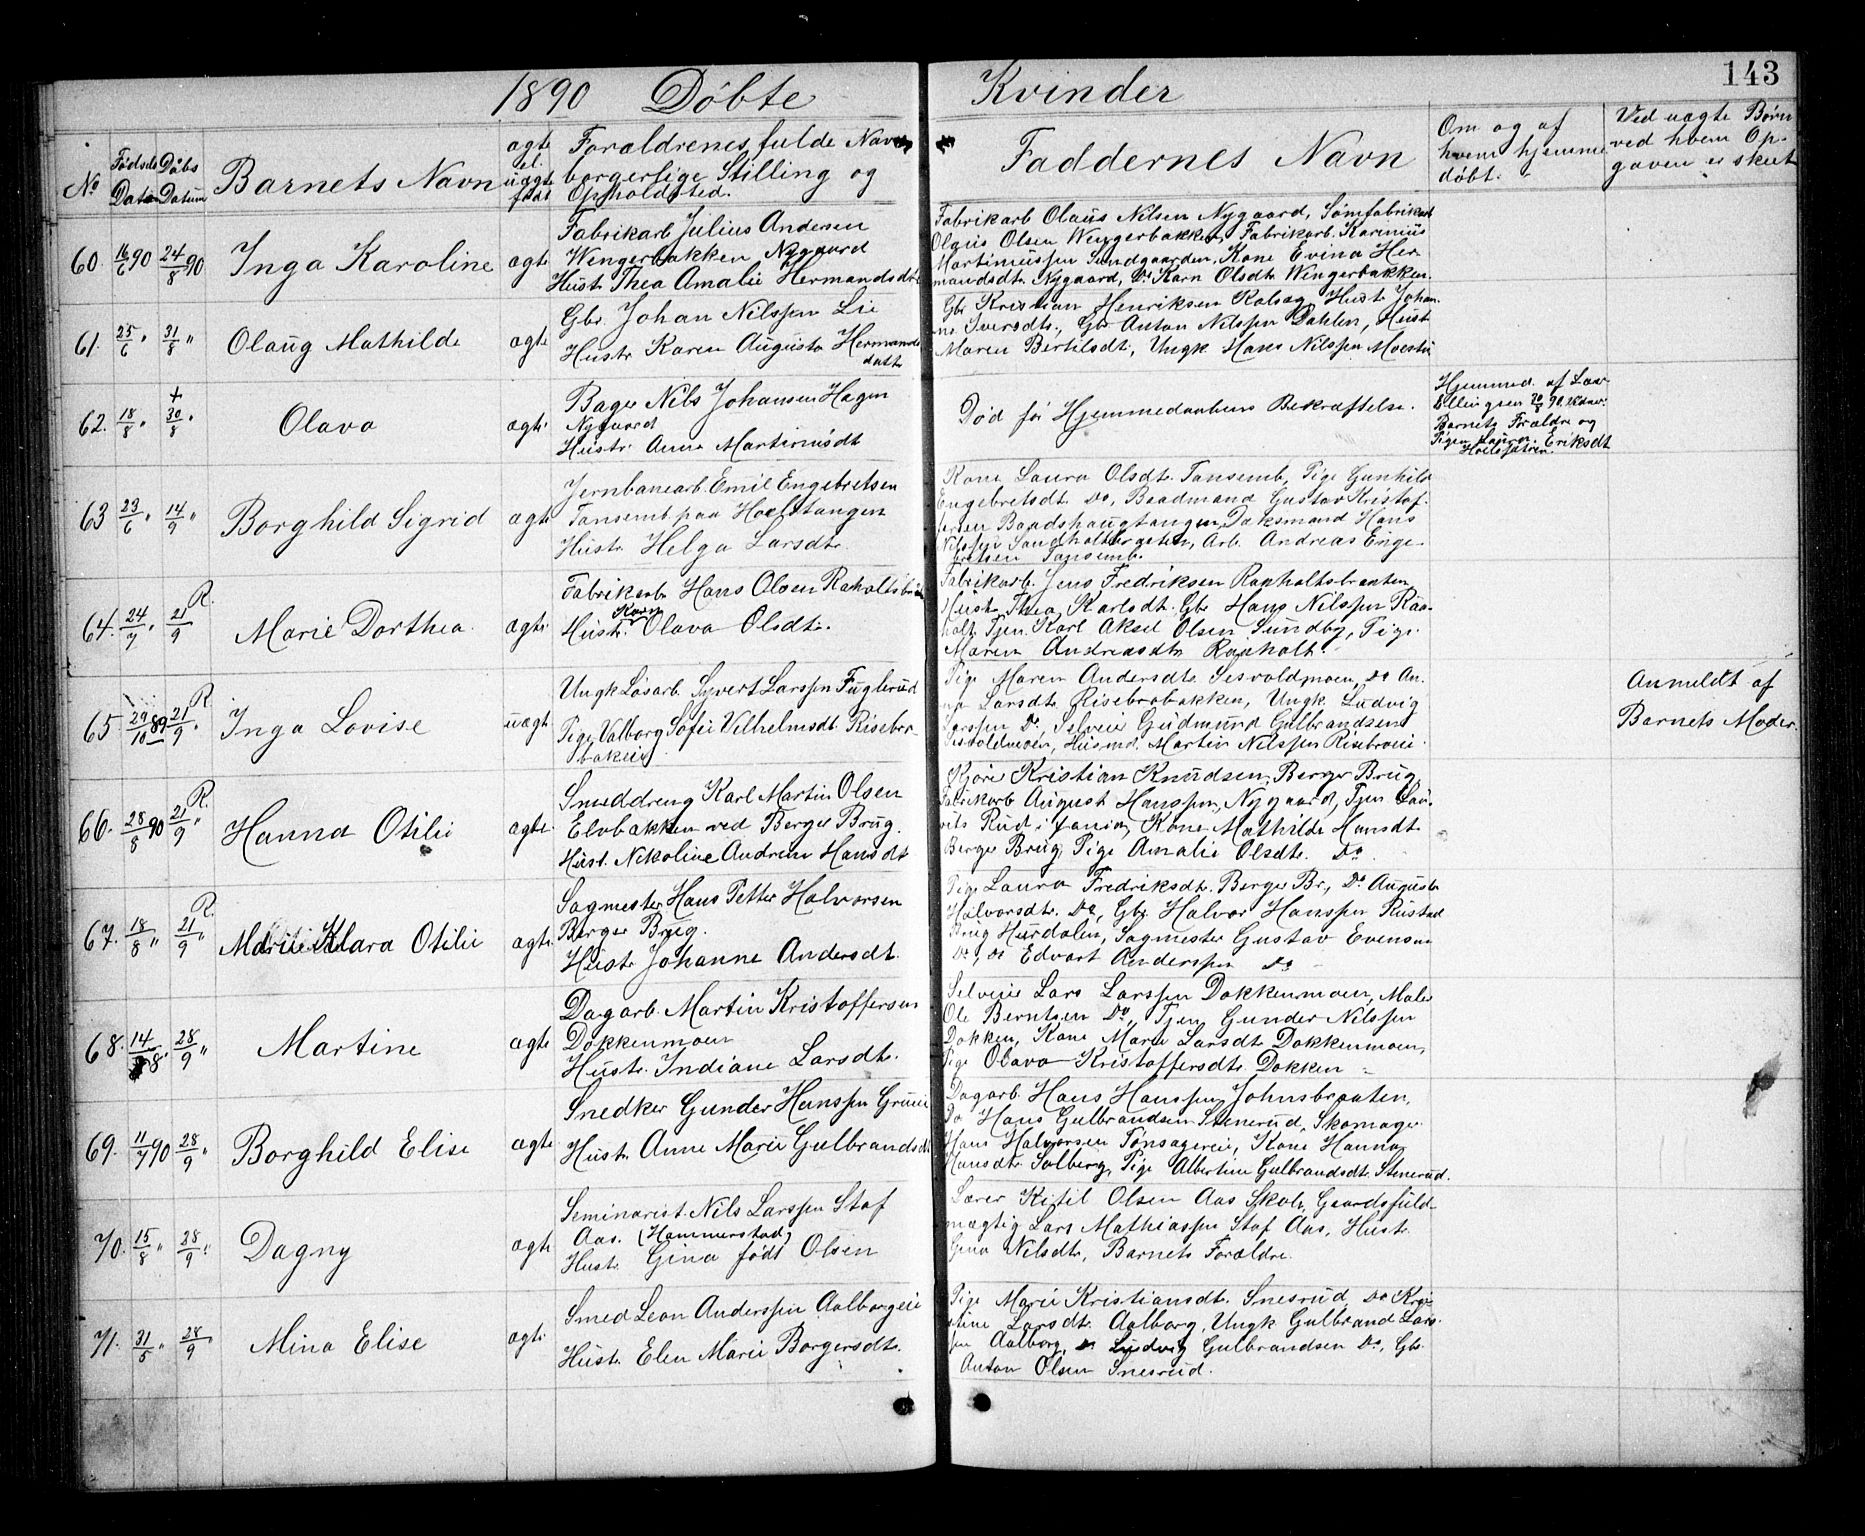 1890 Döbte Kvinder 143
No
Födsels Datum
Daabs Datum
Barnets Navn
ægte el. uægte født
Forældrenes fulde Navn borgerlige Stilling og Opholdsted.
Faddernes Navn
Om og af hvem hjemmedøbt.
Ved uægte Børn ved hvem Opgaven er skeet
60. 16/6 90 24/8 90 Inga Karoline ægte
Fabrikarb Julius Andersen
Wengerbakken Nygaard
Hustr. Thea Amalie Hermandsdtr
Fabrikarb Olaus Nilsen Nygaard, Sømfabrikarb
Olaus Olsen Wengerbakken, Fabrikarb. Karinius
Martiniussen Sundgaarden, Kone Evina Her-
mandsdtr Nygaard, Do. Karn Olsdtr Wengerbakken.
61. 25/6 " 31/8 " Olaug Mathilde ægte
Gbr. Johan Nilssen Lie
Hustr Karen Augusta Hermands
datter
Gbr Kristian Henriksen Kolsag, Hustr Johan-
ne Iversdtr., Gbr Anton Nilssen Dahlen, Hustr
Maren Bertilsdt, Ungk. Hans Nilssen Moestu
62. 18/8 " + 30/8 " Olava ægte
Bager Nils Johansen Hagen
Nygaard
Hustr. Anne Martinusdt
Død før Hjemmedaabens Bekræftelse.
Hjemmed. af Lær
Ellingsen 20/8 90.
Barnets Forældre og
Pigen Laura Eriksdt
63 23/6 " 14/9 " Borghild Sigrid ægte
Jernbanearb. Emil Engebretsen
Tansemb paa Hoelstangen
Hustr. Helga Larsdtr.
Kone Laura Olsdtr. Tansemb, Pige Gunhild
Engebretsdt Do, Baadmand Gustav Kristof-
fersen Baadshaugtangen, Daksmand Hans
Nilssen Sundholtbergsten, Arb. Andreas Enge-
bretsen Tansemb.
64. 24/7 " 21/9 R. Marie Dorthea ægte
Fabrikarb Hans Olsen Raholts
Karn
Hustr. Olava Olsdtr.
Fabrikarb. Jens Fredriksen Raaholtsbraaten
Hustr Thea Karlsdt. Gbr Hans Nilssen Raa-
holt, Tjen Karl Aksel Olsen Sundby, Pige
Maren Andreasdtr Raaholt.
65. 29/10 89 21/9 " R Inga Lovise uægte
Ungk Løsarb. Syvert Larssen Fuglerud
Pige Valborg Sofie Vilhelmsdt Risebro-
bakken
Pige Maren Andersdtr. Sesvoldmoen, Do An-
na Larsdt Risebrobakken, Ungk Ludvig
Larssen Do, Selveier Gudmund Gulbrandsen
Sesvoldmoen, Husmd. Martin Nilssen Risebroeie.
Anmeldt af
Barnets Moder.
66. 28/8 90 21/9 " R. Hanna Otilie ægte
Smeddreng Karl Martin Olsen
Elvbakken ved Berger Brug.
Hust. Nikoline Andrine Hansdt
Kjører Kristian Knudsen, Berger Brug,
Fabrikarb August Hanssen, Nygaard, Tjen Lau-
rits Rud i Jania, Kone Mathilde Hansdt
Berger Brug, Pige Amalie Olsdtr. Do.
67. 18/8 " 21/9 " R. Marie Klara Otilie ægte
Sagmester Hans Petter Halvorsen
Berger Brug.
Hustr Johanne Andersdt.
Pige Laura Fredriksdt. Berger Br, Do Augusta
Halvorsdtr. Do, Gbr Halvor Hanssen Rustad
Brug Hurdalen, Sagmester Gustav Evensen
Do, do Edvart Anderssen Do
68. 14/8 " 28/9 " Martine ægte
Dagarb. Martin Kristoffersen
Dokkenmoen
Hustr. Indiane Larsdtr.
Selveier Lars Larssen Dokkenmoen, Maler
Ole Berntsen Do, Tjen Gunder Nilssen
Dokken, Kone Marie Larsdt Dokkenmoen,
Pige Olava Kristoffersdtr. Dokken
69. 11/7 90 28/9 " Borghild Elise ægte
Snedker Gunder Hanssen Grueie
Hustr. Anne Marie Gulbrandsdt
Dagarb. Hans Hanssen Johnsbraaten,
Do Hans Gulbrandsen Stenerud, Skomager
Hans Halvorsen Tønsagereie, Kone Hanna
Hansdtr Solberg, Pige Albertine Gulbrandsdt. Stenerud.
70. 15/8 " 28/9 " Dagny ægte
Seminarist Nils Larssen Staf
Aas. (Hammerstad)
Hustr. Gina født Olsen
Lærer Kitil Olsen Aas Skole, Gaardsfuld-
mægtig Lars Mathiassen Staf Aas, Hustr.
Gina Nilsdtr, Barnets Forældre.
71. 31/5 " 28/9 " Mina Elise ægte
Smed Leon Anderssen Aalborgeie
Hustr. Elen Marie Borgersdtr.
Pige Marie Kristiansdtr. Snesrud, Do Kri-
stine Larsdtr. Aalborg, Ungk Gulbrand Lars-
sen Aalborg, Do Ludvig Gulbrandsen Do, Gbr.
Anton Olsen Snesrud.